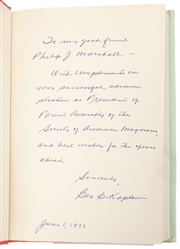 To my good friend
Philip J. Marshall —
With compliments on
your successful admini-
stration as President of
Parent Assembly of the
Society of American Magicians,
and best wishes for the years
ahead
Sincerely,
Geo G. Kaplan
June 1, 1971